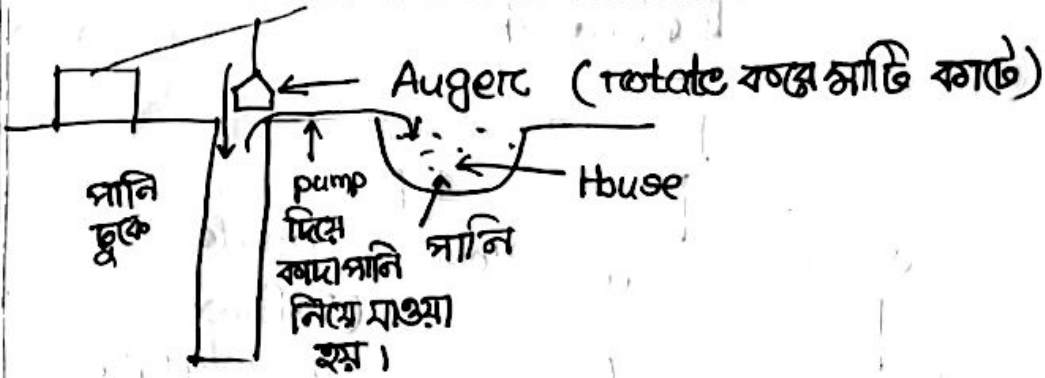 Auger (rotate করে মাটি কাটে)
পানি
ঢুকে
pump
দিয়ে
কাদাপানি
নিয়ে যাওয়া
হয়।
পানি
House